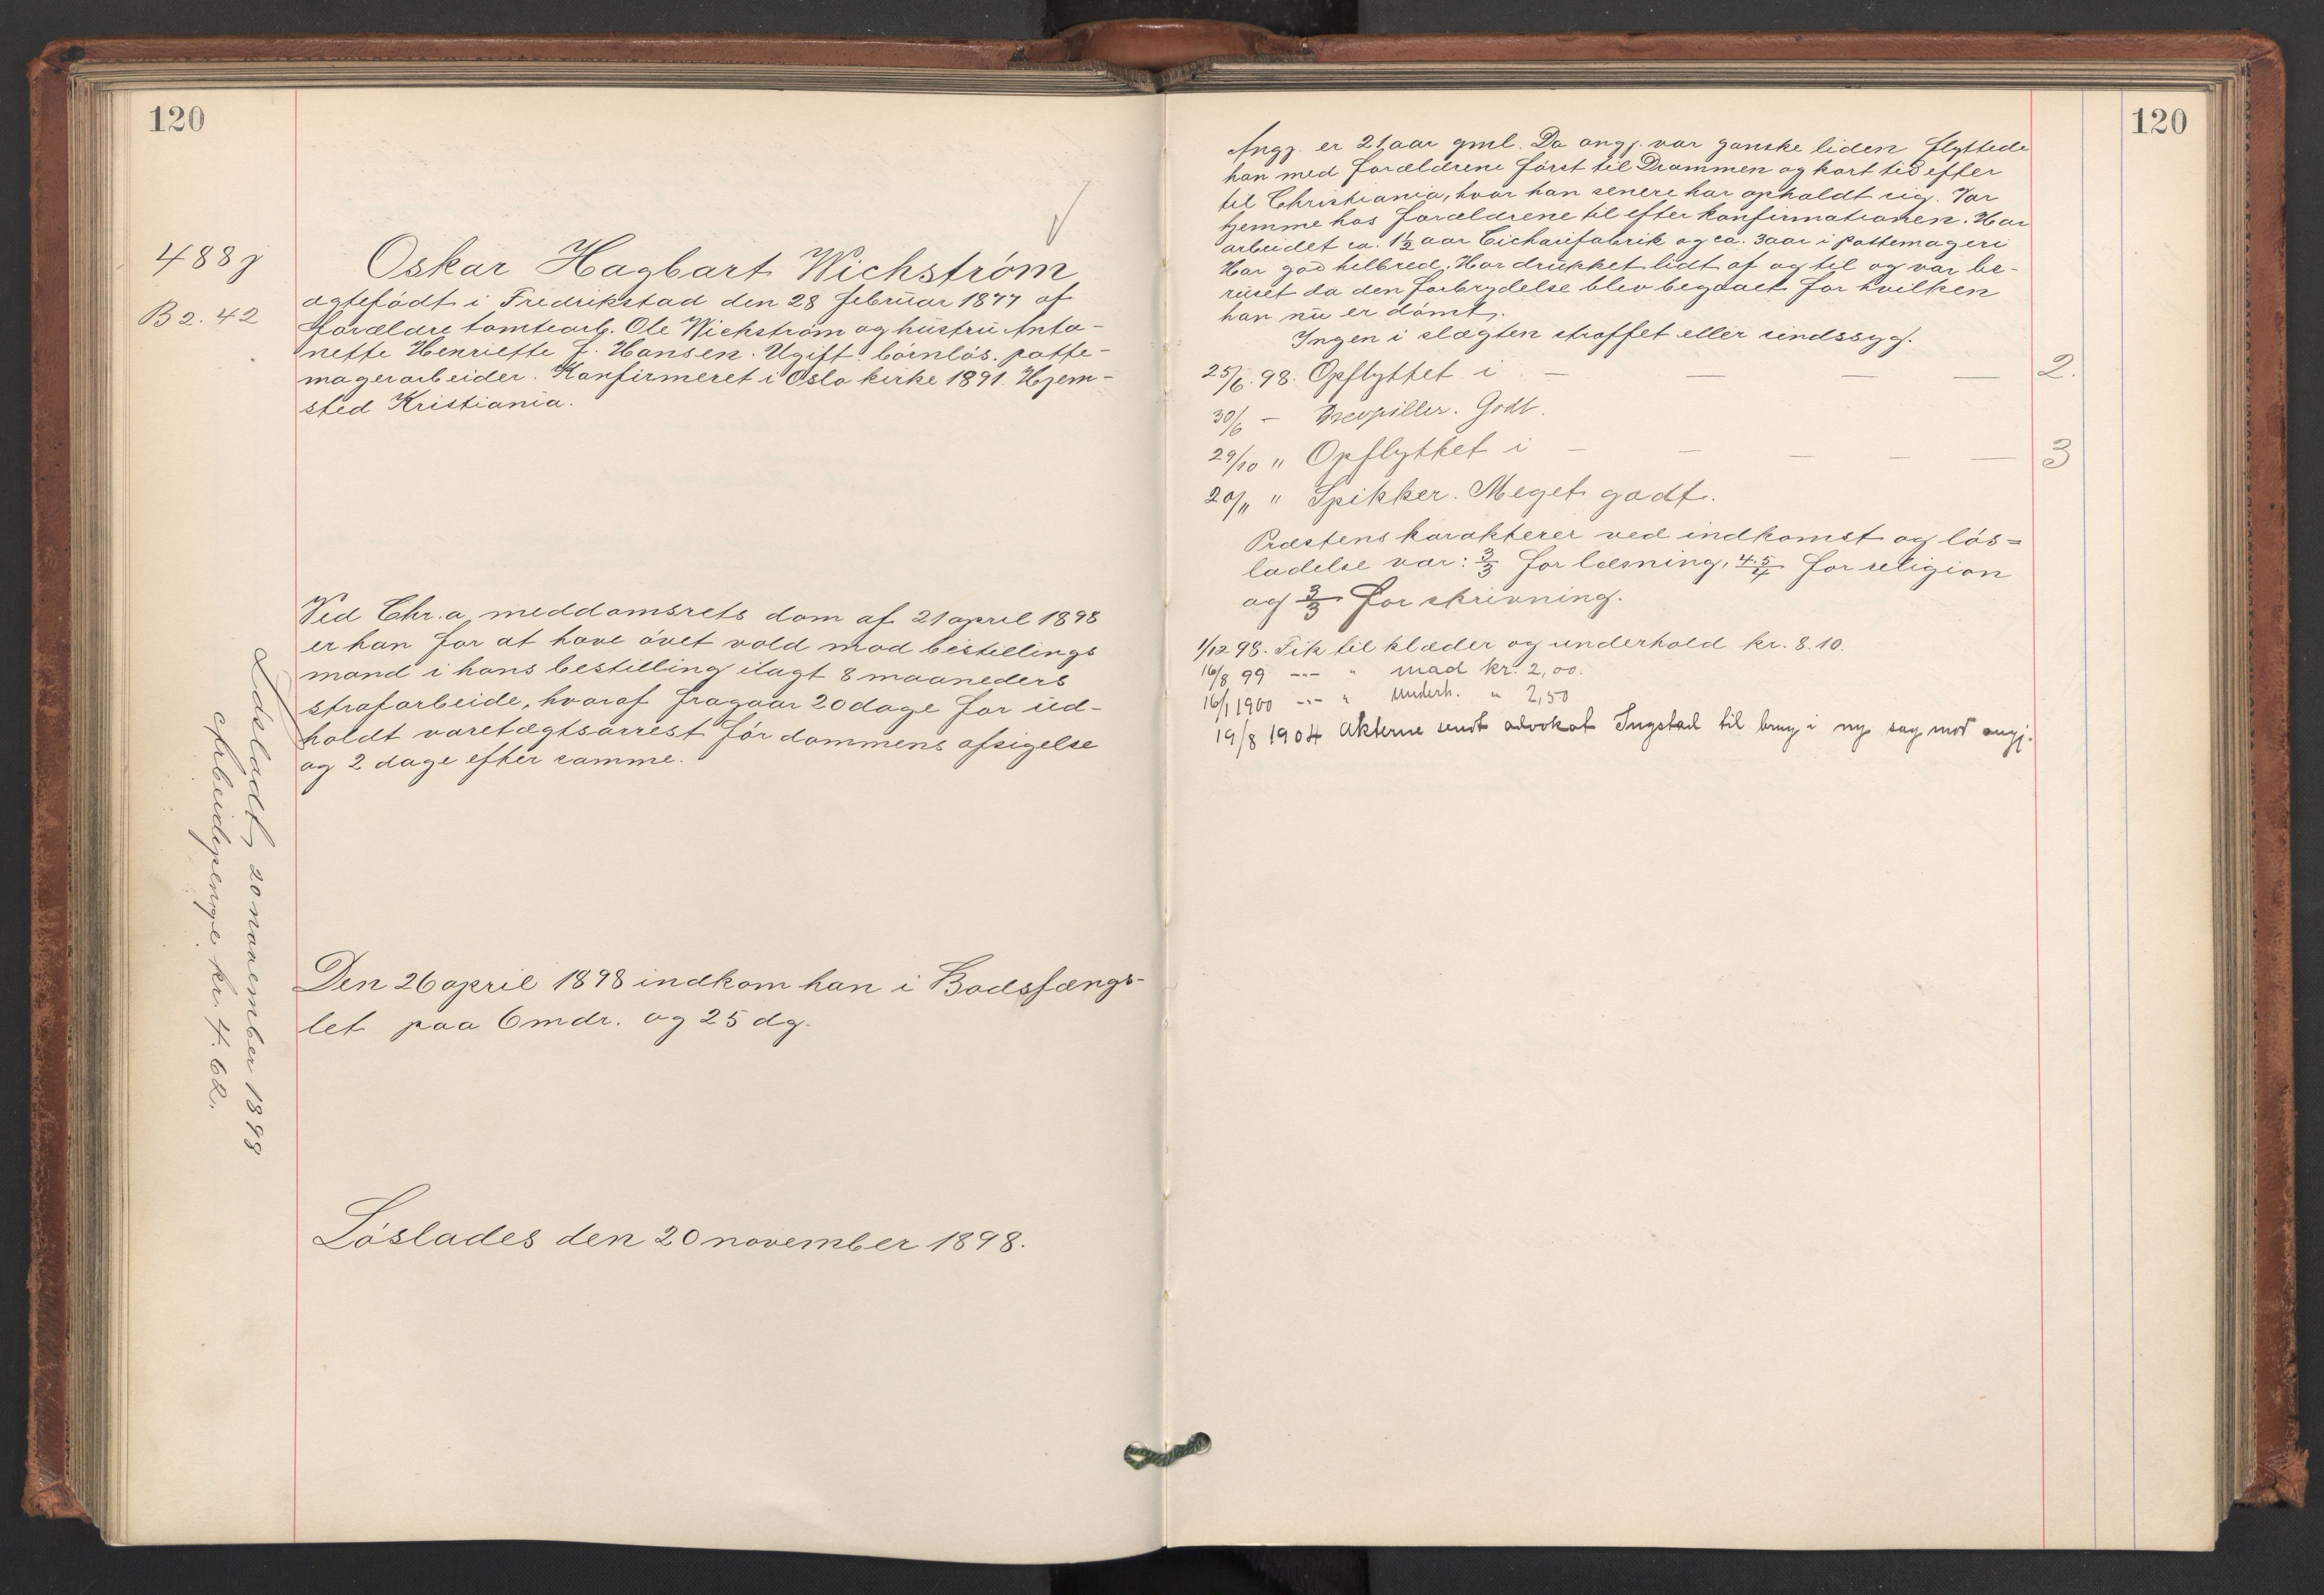 120
488 j
B 2. 42
Oskar Hagbart Wichström
ægtefödt i Fredrikstad den 28 februar 1877 af
forældre tomtearb. Ole Wichström og hustru Anto-
nette Henriette f. Hansen. Ugift. börnlös. potte-
magerarbeider. Konfirmeret i Oslo kirke 1891. Hjem-
sted Kristiania.
Ved Chr.a meddomsrets dom af 21 april 1898
er han for at have övet vold mod bestillings
mand i hans bestilling ilagt 8 maaneders
strafarbeide, hvoraf fragaar 20 dage for ud-
holdt varetægtsarrest för dommens afsigelse
og 2 dage efter samme.
Den 26 april 1898 indkom han i Bodsfængs-
let paa 6 mdr. og 25 dg.
Löslades den 20 november 1898.
Lösladt 20 november 1898
Arbeidspenge kr. 4.62.
120
Angj. er 21 aar gml. Da angj. var ganske liden flyttede
han med forældrene först til Drammen og kort tid efter
til Christiania, hvor han senere har opholdt sig. Var
hjemme hos forældrene til efter konfirmationen. Har
arbeidet ca. 1½ aar Cichoriefabrik og ca. 3 aar i pottemageri
Har god helbred. Har drukket lidt af og til og var be-
ruset da den forbrydelse blev begaaet for hvilken
han nu er dömt.
Ingen i slægten straffet eller sindssyg.
25/6. 98. Opflyttet i — — — — 2.
30/6 - Drevpiller. Godt.
29/10 " Opflyttet i — — — — — 3
20/11 " Spikker. Meget godt.
Præstens karakterer ved indkomst og lös=
ladelse var: 3/3 for læsning, 4.5/4 for religion
og 3/3 for skrivning.
1/12 98. Fik til klæder og underhold kr. 8.10.
16/8 99 -"- " mad kr. 2,00.
16/1 1900 -"- " Underh. " 2,50
19/8 1904 Akterne sendt advokat Ingstad til brug i ny sag mod angj.